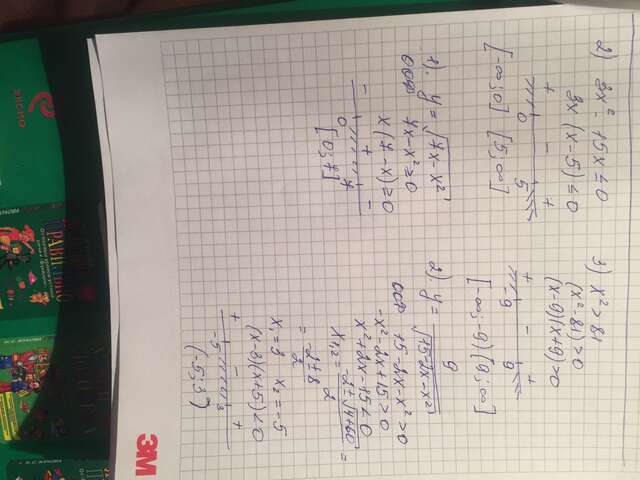 2) 3x² - 15x ≤ 0
3x (x-5) ≤ 0
+ - +
0 5
[-∞; 0] [5; ∞]
3) x² > 81
(x² - 81) > 0
(x-9)(x+9) > 0
+ - +
-9 9
[-∞; -9) (9; ∞]
1). y = √7x - x²
ООФ 7x - x² ≥ 0
x (7-x) ≥ 0
- + -
0 7
[0; 7]
2). y = 9
√15-2x-x²
ООФ 15-2x-x² > 0
-x²-2x+15 > 0
x²+2x-15 < 0
x₁,₂ = -2±√4+60 =
2
= -2±8
2
x₁ = 3 x₂ = -5
(x-3)(x+5) < 0
+ - +
-5 3
(-5; 3)
3M
эксмо